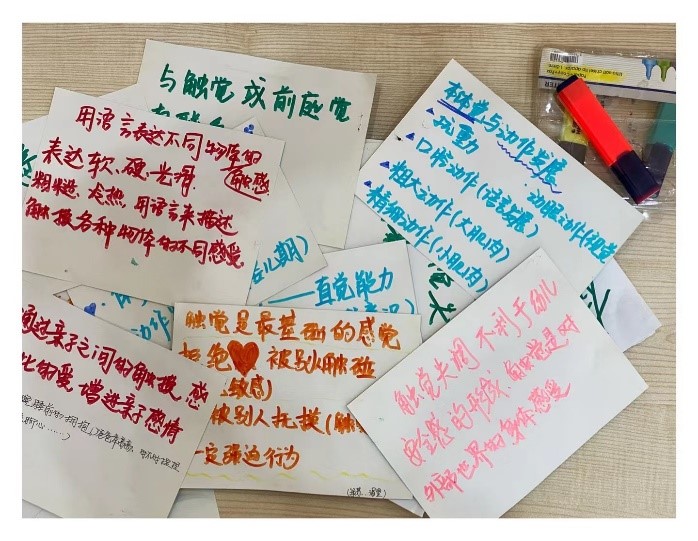 与触觉或前庭觉
用语言表达不同物体的
触感
表达软、硬、光滑、
粗糙、发热、用语言来描述
触摸各种物体的不同感受
本体觉与动作发展
▲抗重力
▲口腔动作(语言发展)
动眼动作(视觉
▲粗大动作(大肌肉)
▲精细动作(小肌肉)
儿期)
——直觉能力
动作
触觉是最基础的感觉
拒绝❤被别人触碰
敏感)
被别人抚摸(触
一定强迫行为
通过亲子之间的触摸,感
的爱,增进亲子感情
睡前的拥抱
触觉失调 不利于幼儿
安全感的形成,触觉是对
外部世界的身体感受